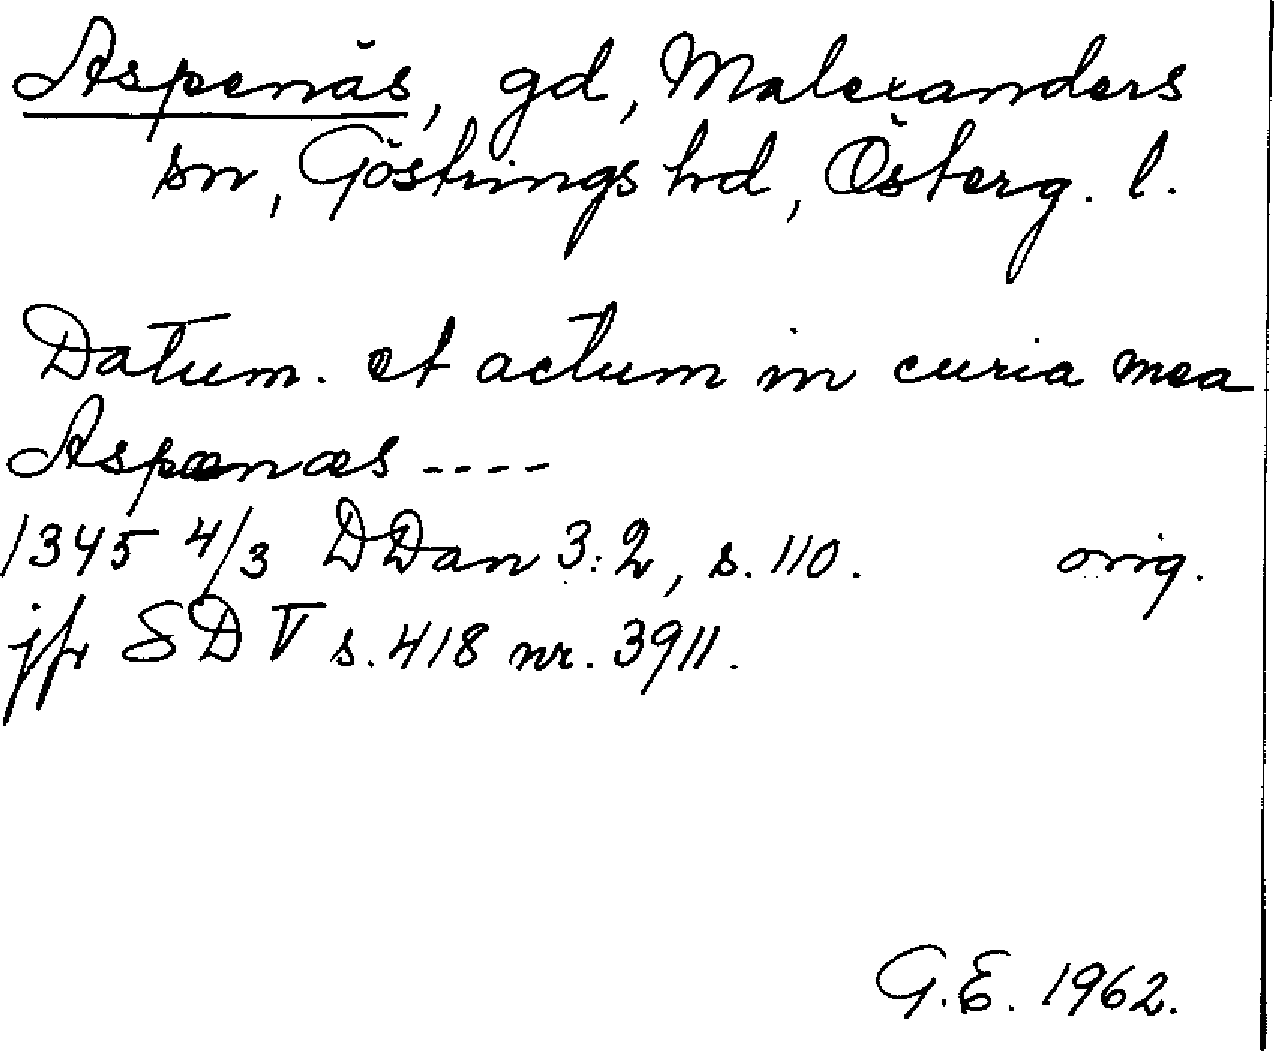 Aspenäs, gd, Malexanders
sn, Göstrings hd, Österg. l.
Datum. et actum in curia mea
Aspænæs ----
1345 4/3 DDan 3:2, s. 110. orig.
jfr SD V s. 418 nr. 3911.
G.E. 1962.